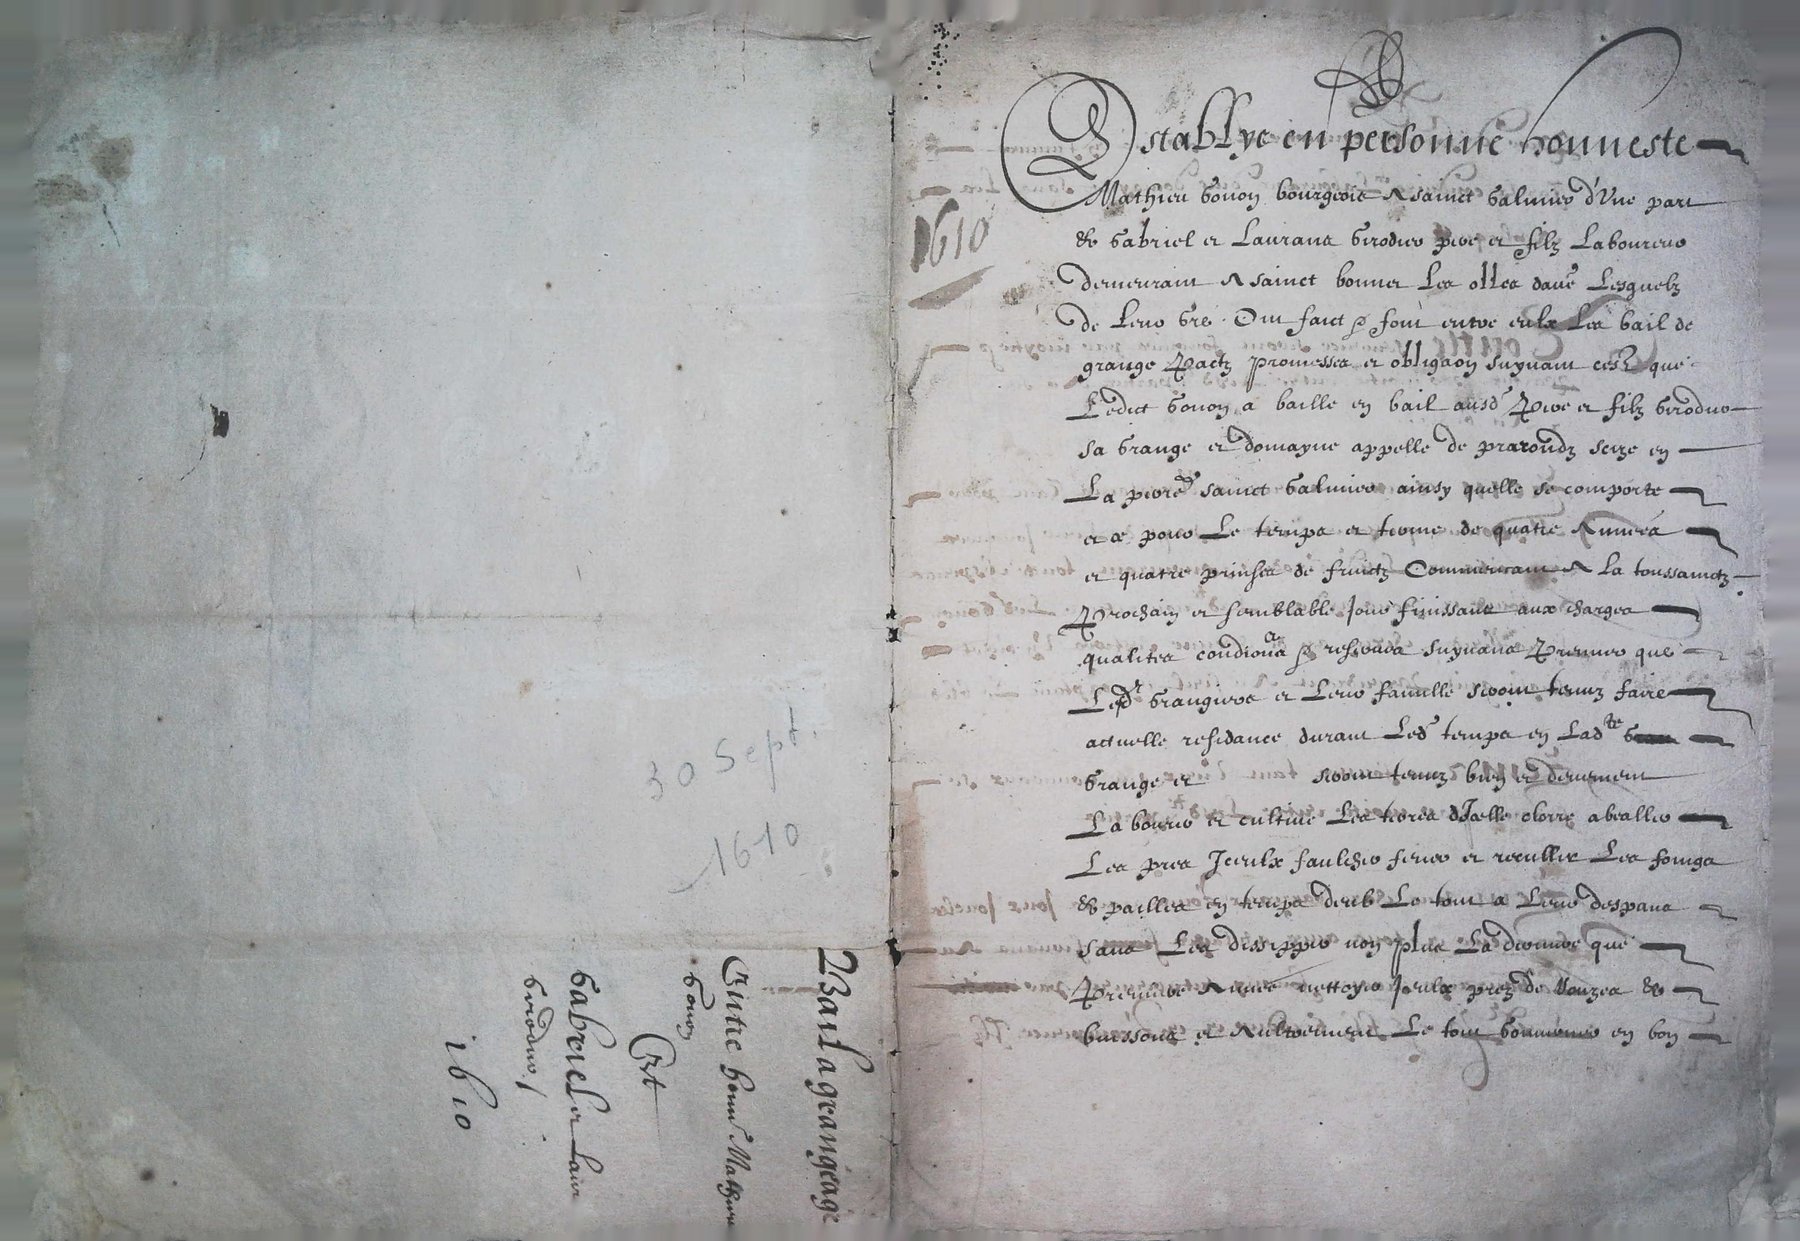 30 Sept.
1610
Bail a grangeage
Entre honn. Mathieu
Gonon
Et
Gabriel et Laur
Girodier /
1610
1610
Establye en personne honneste
Mathieu Gonon bourgeois A sainct Galmier d'Une part
& Gabriel et Laurans Girodier pere et filz Laboureur
demeurant A sainct bonnet Les olles daue Lesquelz
de Leur Gre Ont faict & font entre eulx Les bail de
grange Pactz promesses et obligaon suyuant cest que
Ledict Gonon a baille en bail ausd Pere et filz Girodier
sa Grange et domayne appelle de prarondz seize en
La sainct Galmier ainsy quelle se comporte
et ce pour Le temps et terme de quatre Annees
et quatre prinses de fruictz Commencant A la toussainctz
Prochain et semblable Jour finissans aux charges
qualites condions & reserues suyuans Premier que
Lesd Grangiers et Leur famille seront tenuz faire
actuelle residance durant Led temps en Ladte
Grange et seront tenuz bien et deuement
Labourer et cultiue Les terres dIcelle clorre abealler
Les pres Iceulx faulcher fener et recullir Les foings
& pailles en temps deub Le tout a Leur despans
sans Les dissipper non plus La derniere que
Premiere Annee nettoyer Iceulx prez de Ronzes &
buissons et Aultrement Le tout Gouuerner en bon